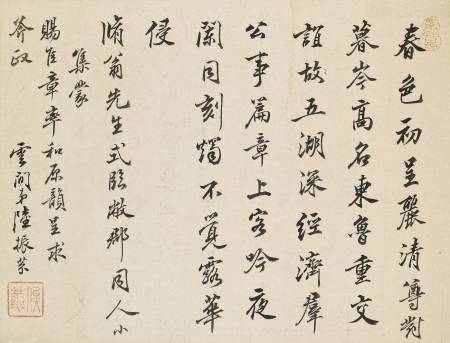 春色初呈麗清尊對
暮岑高名東魯重交
誼故五湖深經濟羣
公事篇章上客吟夜
闌同刻燭不覺露華
侵
脩翁先生式臨敝郡同人小
集蒙
賜佳章率和原韻呈求
斧政
雲間弟陸振芬